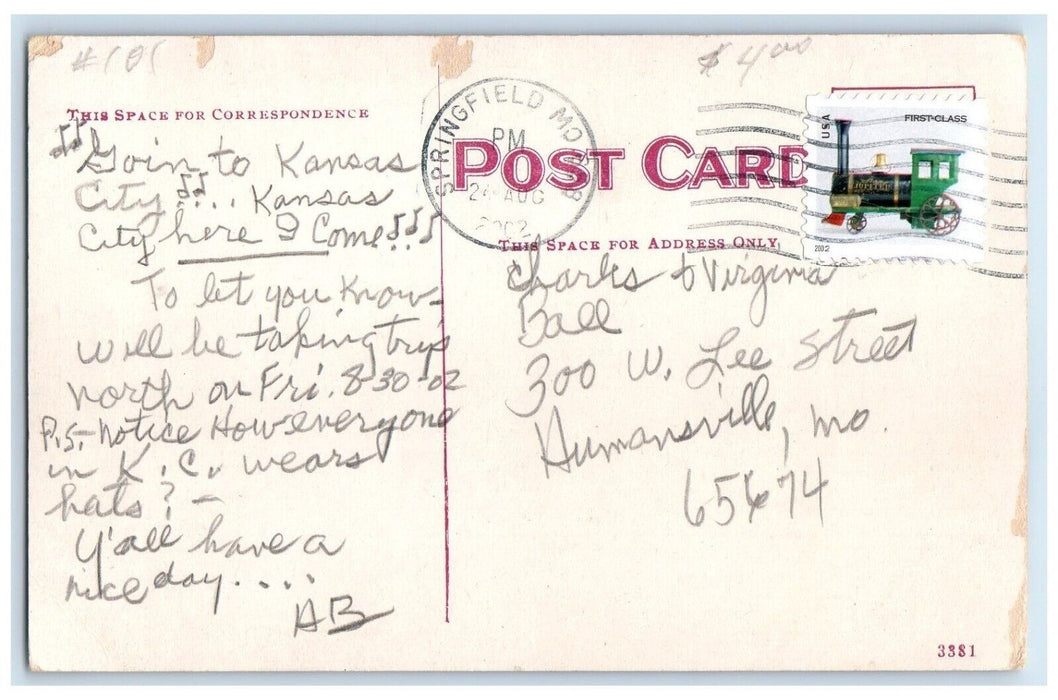 #101
$4.00
THIS SPACE FOR CORRESPONDENCE
♫ Goin to Kansas
City ♫... Kansas
City here I Come ♫♪
To let you know-
will be taking trip
north on Fri. 8-30-02
P.S.- Notice How everyone
in K.C. wears
hats? -
Y'all have a
nice day....
AB
SPRINGFIELD MO
PM
24 AUG
2002
POST CARD
USA
FIRST-CLASS
JUPITER
2002
THIS SPACE FOR ADDRESS ONLY
Charles & Virginia
Ball
300 W. Lee Street
Humansville, Mo.
65674
3381